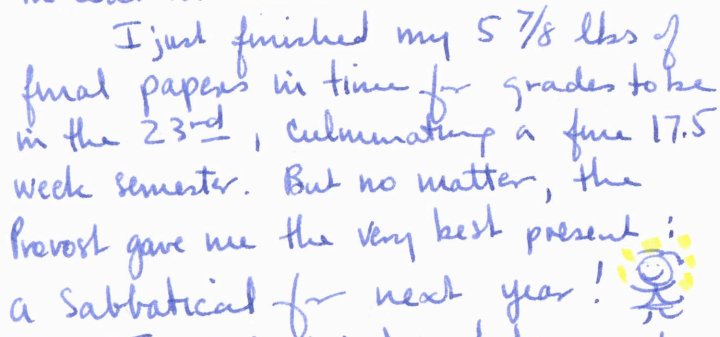 I just finished my 5 7/8 lbs of
final papers in time for grades to be
in the 23rd, culminating a fine 17.5
week semester. But no matter, the
Provost gave me the very best present:
a sabbatical for next year!